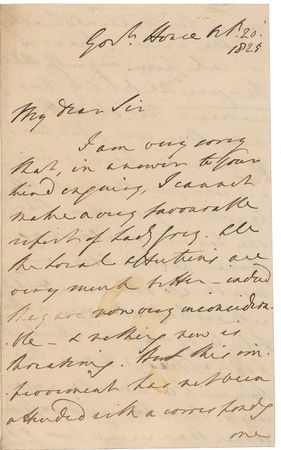 Govt. House
20.
1825
My Dear Sir
I am very sorry
that, in answer to your
kind enquiry, I cannot
make a very favourable
report of Lady Grey. All
the local are
very much better – indeed
they are now very inconsidera-
ble – & nothing new is
threatening. But this im-
provement has not been
attended with a correspondg
one